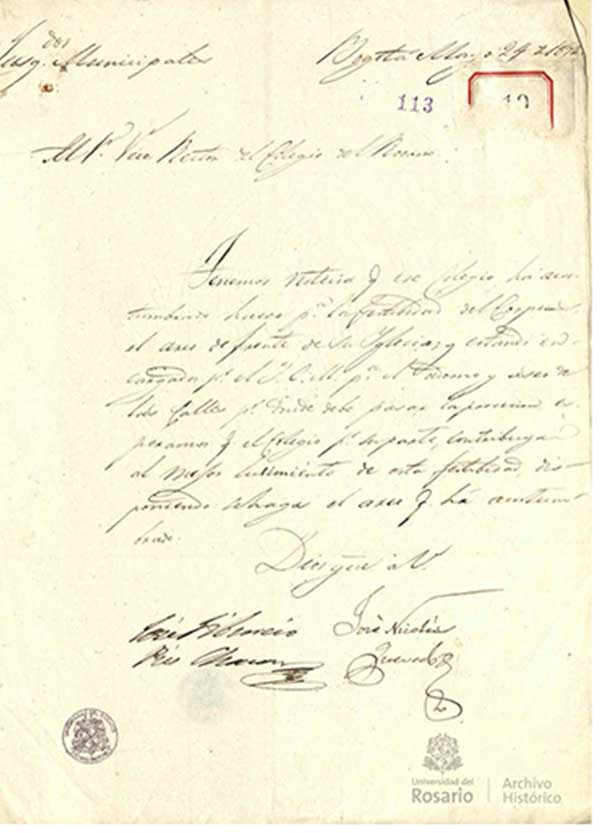 Juzg.dos Municipales
Bogotá Mayo 24 de
113
Al Sr. Vice Rector del Colegio del Rosario
Tenemos noticia q ese Colegio ha acos-
tumbrado hacer pa. la festibidad del Corpus
el aseo de frente de su Iglesia, y estando en-
cargados pr. el pa. el y aseo de
las Calles pr. donde debe pasar la procecion, es-
peramos q. el Colegio pr. su parte, contribuya
al mejor lucimiento de esta festibidad, dis-
poniendo se haga el aseo q ha acostum-
brado.
Dios gue. a V.
José Nicolás
Quevedo
Universidad del
Rosario
Archivo
Histórico